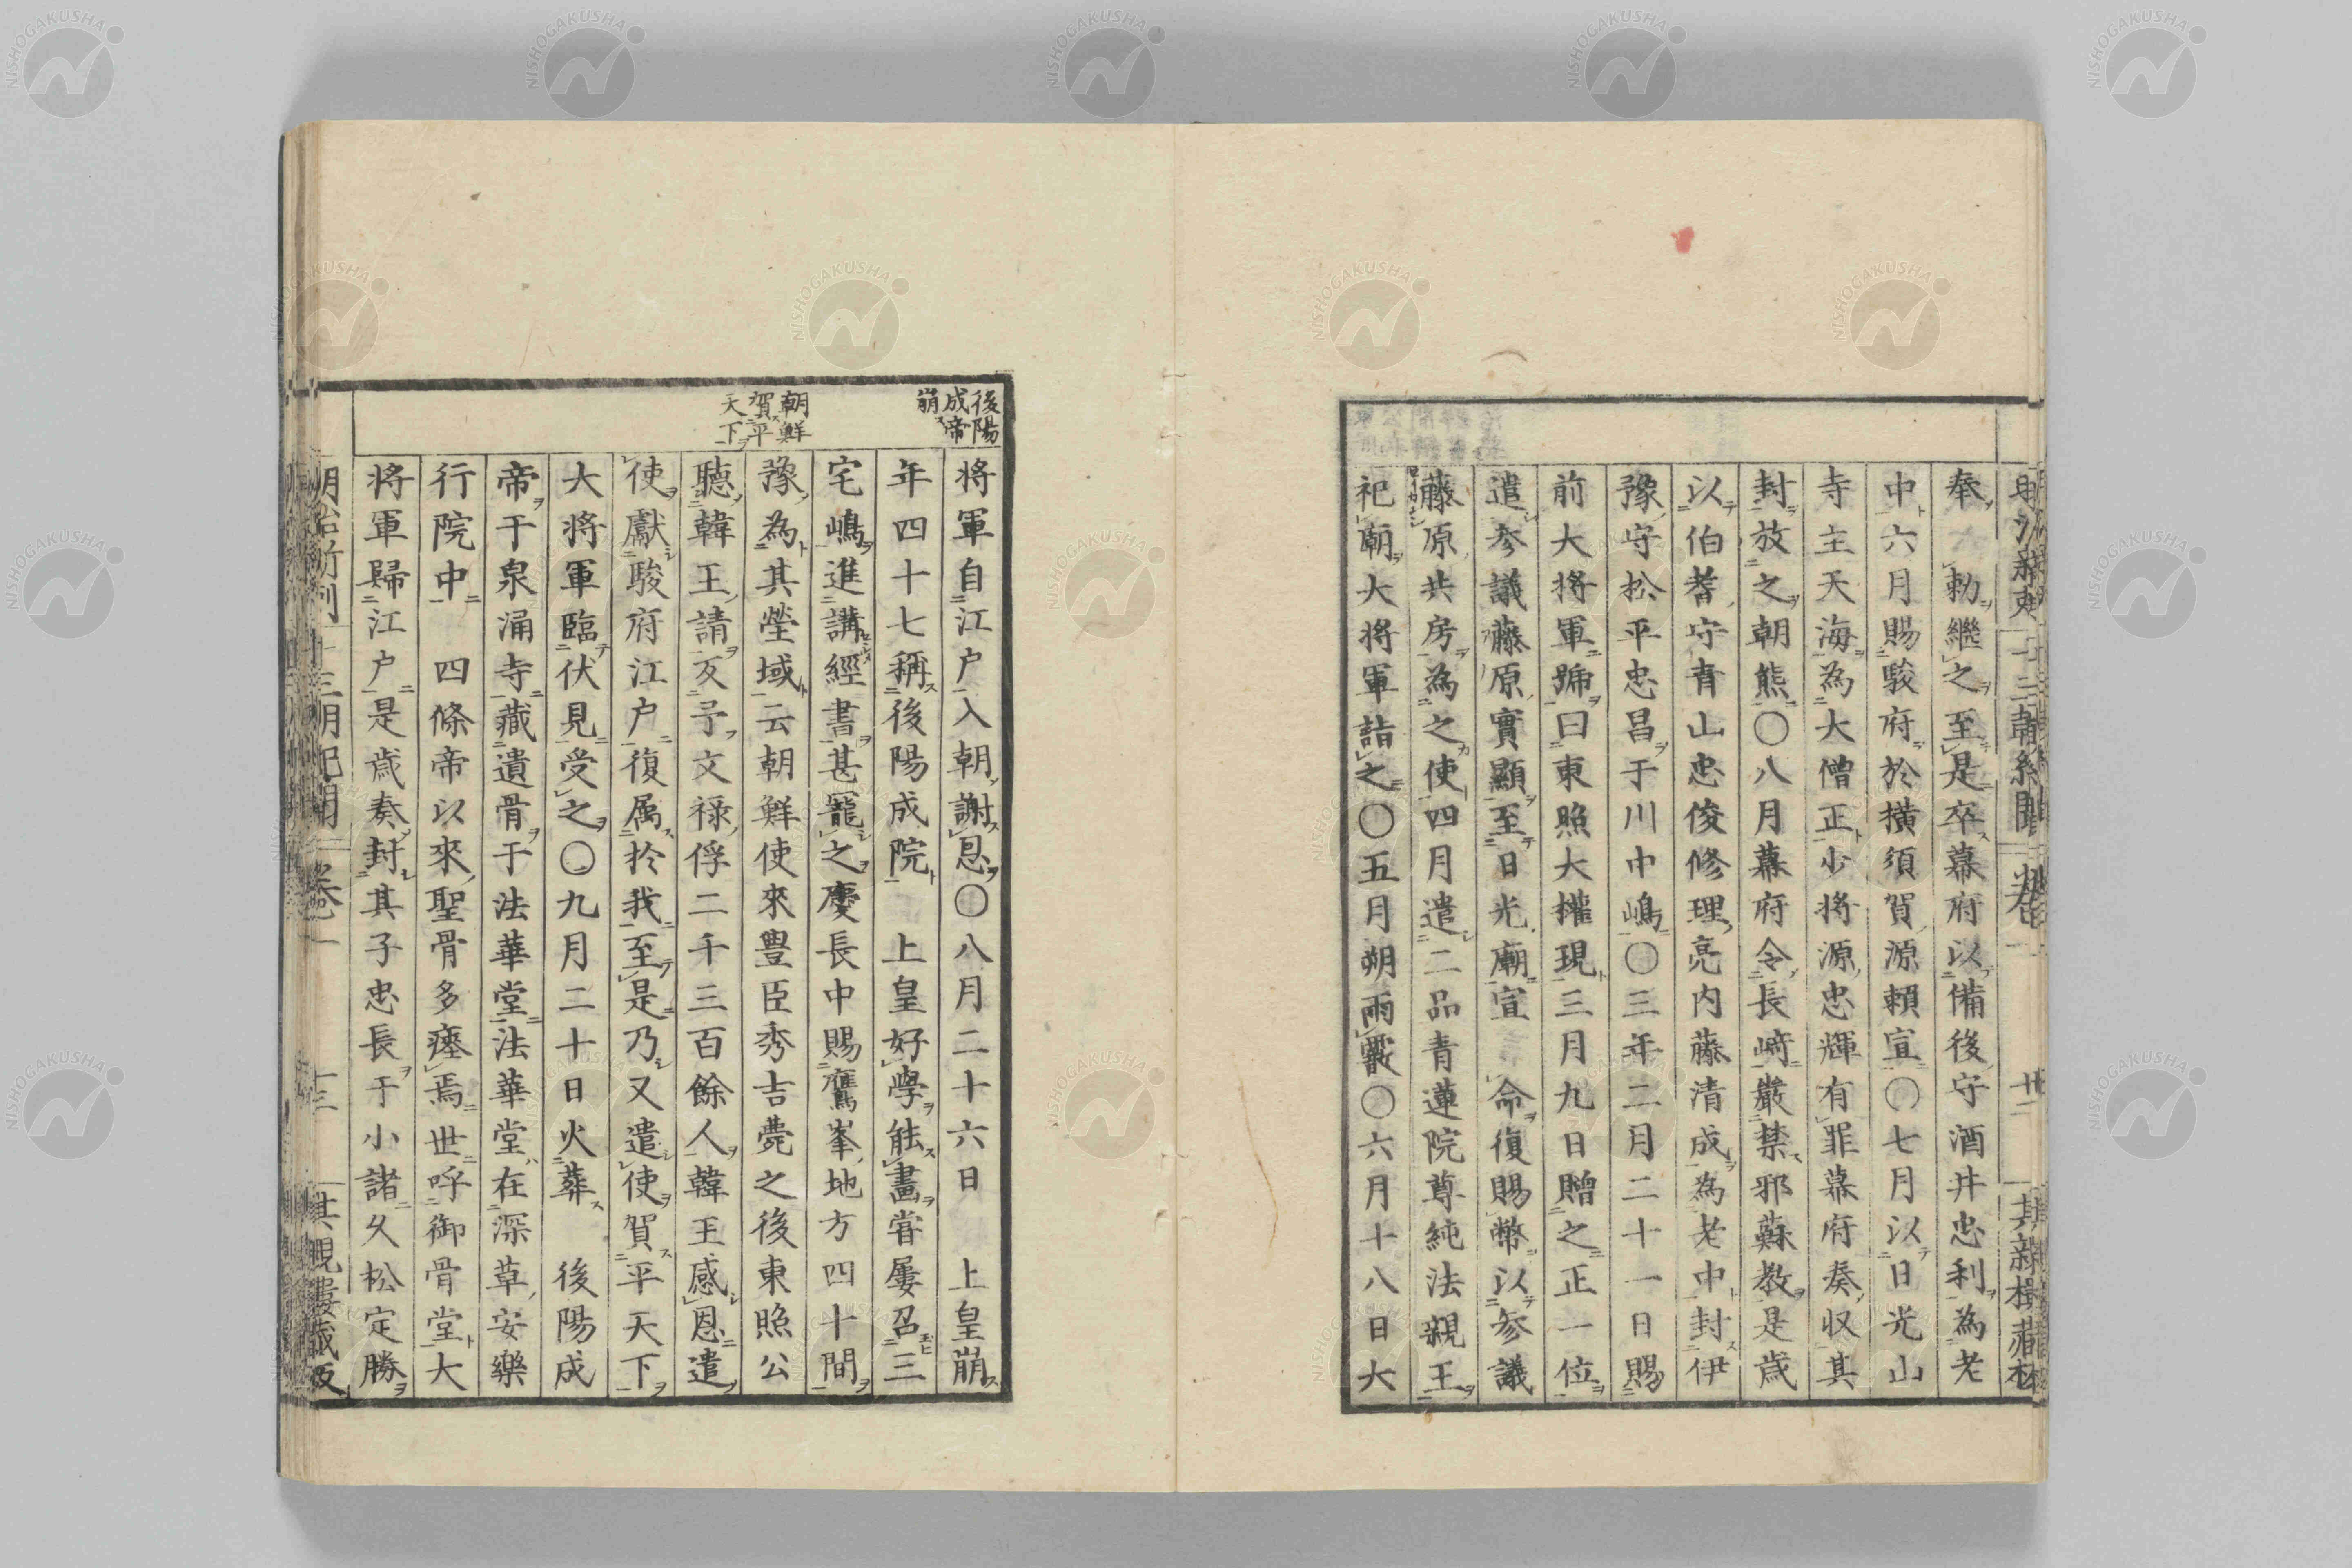 奉　勅繼之至是卒幕府以備後守酒井忠利為老
中六月賜駿府於横須賀源頼宣〇七月以日光山
寺主天海為大僧正少將源忠輝有罪幕府奏収其
封放之朝熊〇八月幕府令長﨑嚴禁邪蘇教是歳
以伯耆守青山忠俊修理亮内藤清成為老中封伊
豫守松平忠昌于川中嶋〇三年二月二十一日賜
前大將軍號曰東照大權現三月九日贈之正一位
遣參議藤原實顯至日光廟宣　命復賜幣以參議
藤原共房為之使四月遣二品青蓮院尊純法親王
祀廟大將軍詣之〇五月朔雨雹〇六月十八日大
後陽
成帝
崩
朝鮮
賀平
天下
將軍自江户入朝謝恩〇八月二十六日　上皇崩
年四十七稱後陽成院　上皇好學能畫嘗屢召三
宅嶋進講經書甚寵之慶長中賜鷹峯地方四十間
豫為其塋域云朝鮮使來豊臣秀吉薨之後東照公
聽韓王請友予文禄俘二千三百餘人韓王感恩遣
使獻駿府江户復属於我至是乃又遣使賀平天下
大將軍臨伏見受之〇九月二十日火葬　後陽成
帝于泉涌寺藏遺骨于法華堂法華堂在深草安樂
行院中　四條帝以來聖骨多瘞焉世呼御骨堂大
將軍歸江户是歳奏封其子忠長于小諸久松定勝